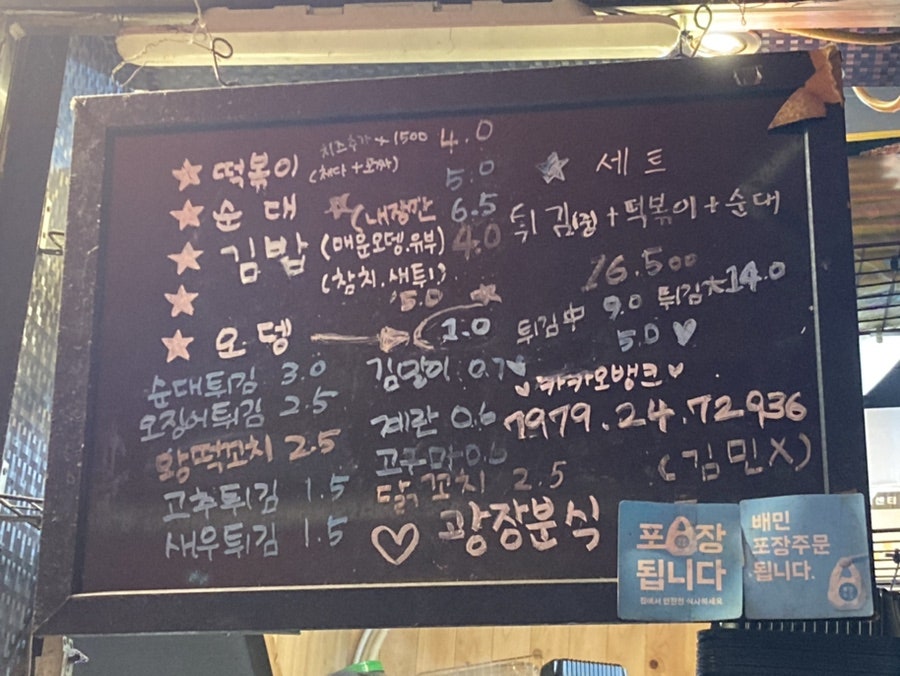 떡볶이 치즈추가 + 1500 4.0
(체다 + 모짜) 5.0
순대 (내장만 6.5
김밥 (매운오뎅.유부) 4.0
(참치.새투!)
5.0
오뎅 1.0
순대튀김 3.0
오징어튀김 2.5
왕떡꼬치 2.5
고추튀김 1.5
새우튀김 1.5
김말이 0.7
계란 0.6
닭꼬치 2.5
광장분식
세트
튀김(中) + 떡볶이 + 순대
16.500
튀김中 9.0 튀김大 14.0
5.0
카카오뱅크
7979.24.72936
(김민X)
포장
됩니다
배민
포장주문
됩니다.
센터